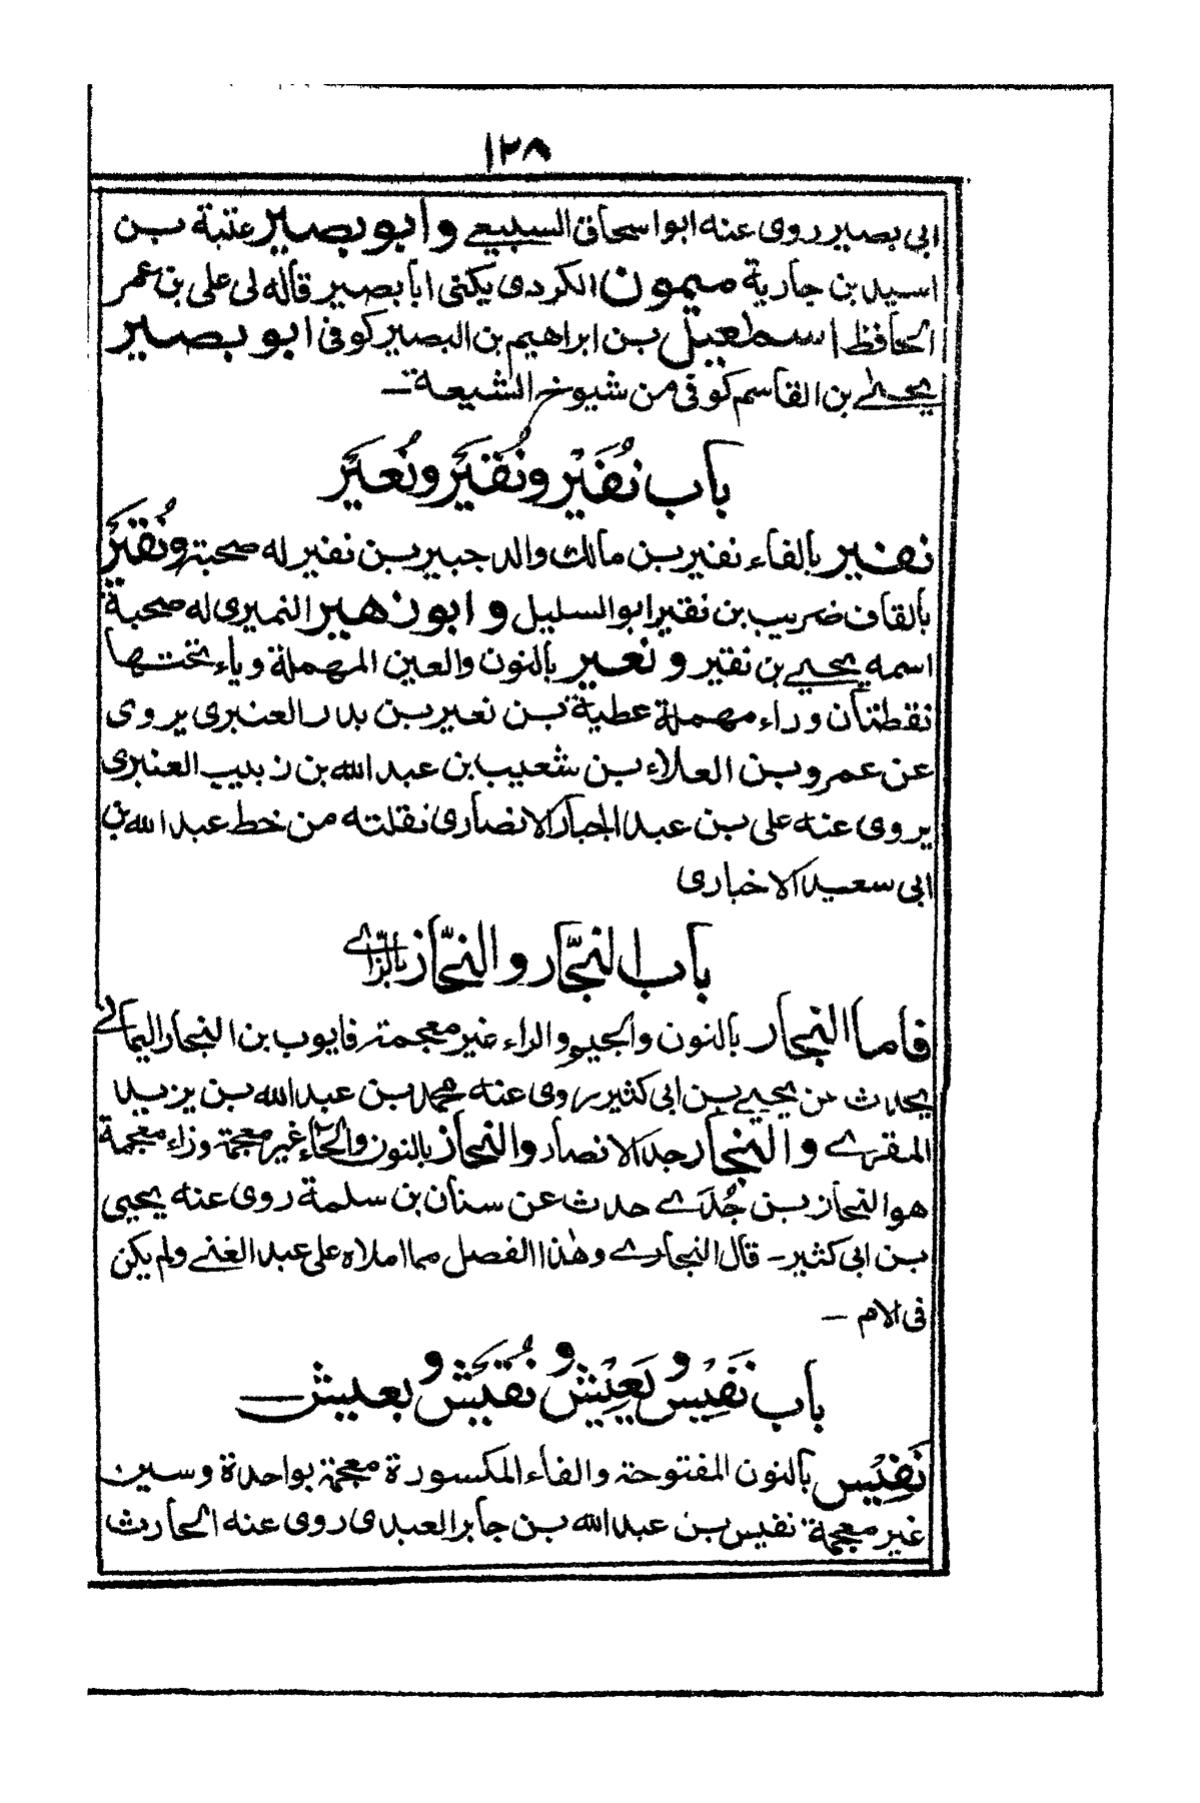 ١٢٨
ابى بصير روى عنه ابواسحاق السبيعے وابوبصير عتبة بن
اسيد بن جارية ميمون الكردى يكنى ابا بصير قاله لى على بن عمر
الحافظ اسمعيل بن ابراهيم بن البصير كوفى ابو بصير
يحيٰے بن القاسم كوفى من شيوخ الشيعة ــ
باب نُفَيْر ونُقَيَر ونُعَيَر
نفير بالفاء نفير بن مالك والد جبير بن نفير له صحبة ونُقَيَر
بالقاف ضريب بن نقير ابوالسليل وابوزهير النميرى له صحبة
اسمه يحيے بن نقير ونعير بالنون والعين المهملة وياء تحتها
نقطتان وراء مهملة عطية بن نعير بن بدر العنبرى يروى
عن عمرو بن العلاء بن شعيب بن عبد الله بن زبيب العنبرى
يروى عنه على بن عبد الجبار الانصارى نقلته من خط عبد الله بن
ابى سعيد الاخبارى
باب النجَّار والنحَّاز بالزّاے
فاما النجار بالنون والجيم والراء غير معجمة فايوب بن النجار اليمانے
يحدث عن يحيے بن ابى كثير روى عنه محمد بن عبد الله بن يزيد
المقرےء والنجار جد الانصار والنحاز بالنون والحاء غير معجمة وزاء معجمة
هوالنحاز بن جُدَےّ حدث عن سنان بن سلمة روى عنه يحيى
بن ابى كثير ــ قال النجارے وهٰذا الفصل مما املاه على عبد الغنے ولم يكن
فى الام ــ
باب نَفِيْس و يَعِيْش و نُقَيَش و بعيش
نَفِيْس بالنون المفتوحة والفاء المكسورة معجمة بواحدة وسين
غير معجمة نفيس بن عبد الله بن جابر العبدى روى عنه الحارث